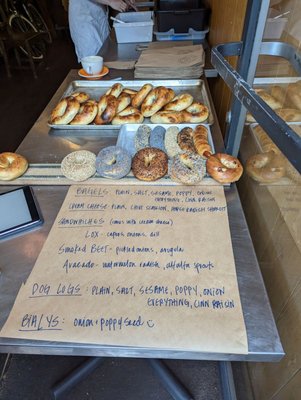 BAGELS: PLAIN, SALT, SESAME, POPPY, ONION
EVERYTHING, CINN RAISIN
CREAM CHEESE: PLAIN, CHIVE SCALLION, HORSERADISH SHALLOT
SANDWICHES (comes with cream cheese)
LOX - capers, onions, dill
Smoked BEET - pickled onions, arugula
Avocado - watermelon radish, alfalfa sprouts
DOG LOGS: PLAIN, SALT, SESAME, POPPY, ONION
EVERYTHING, CINN RAISIN
BIALYS: onion + poppy seed